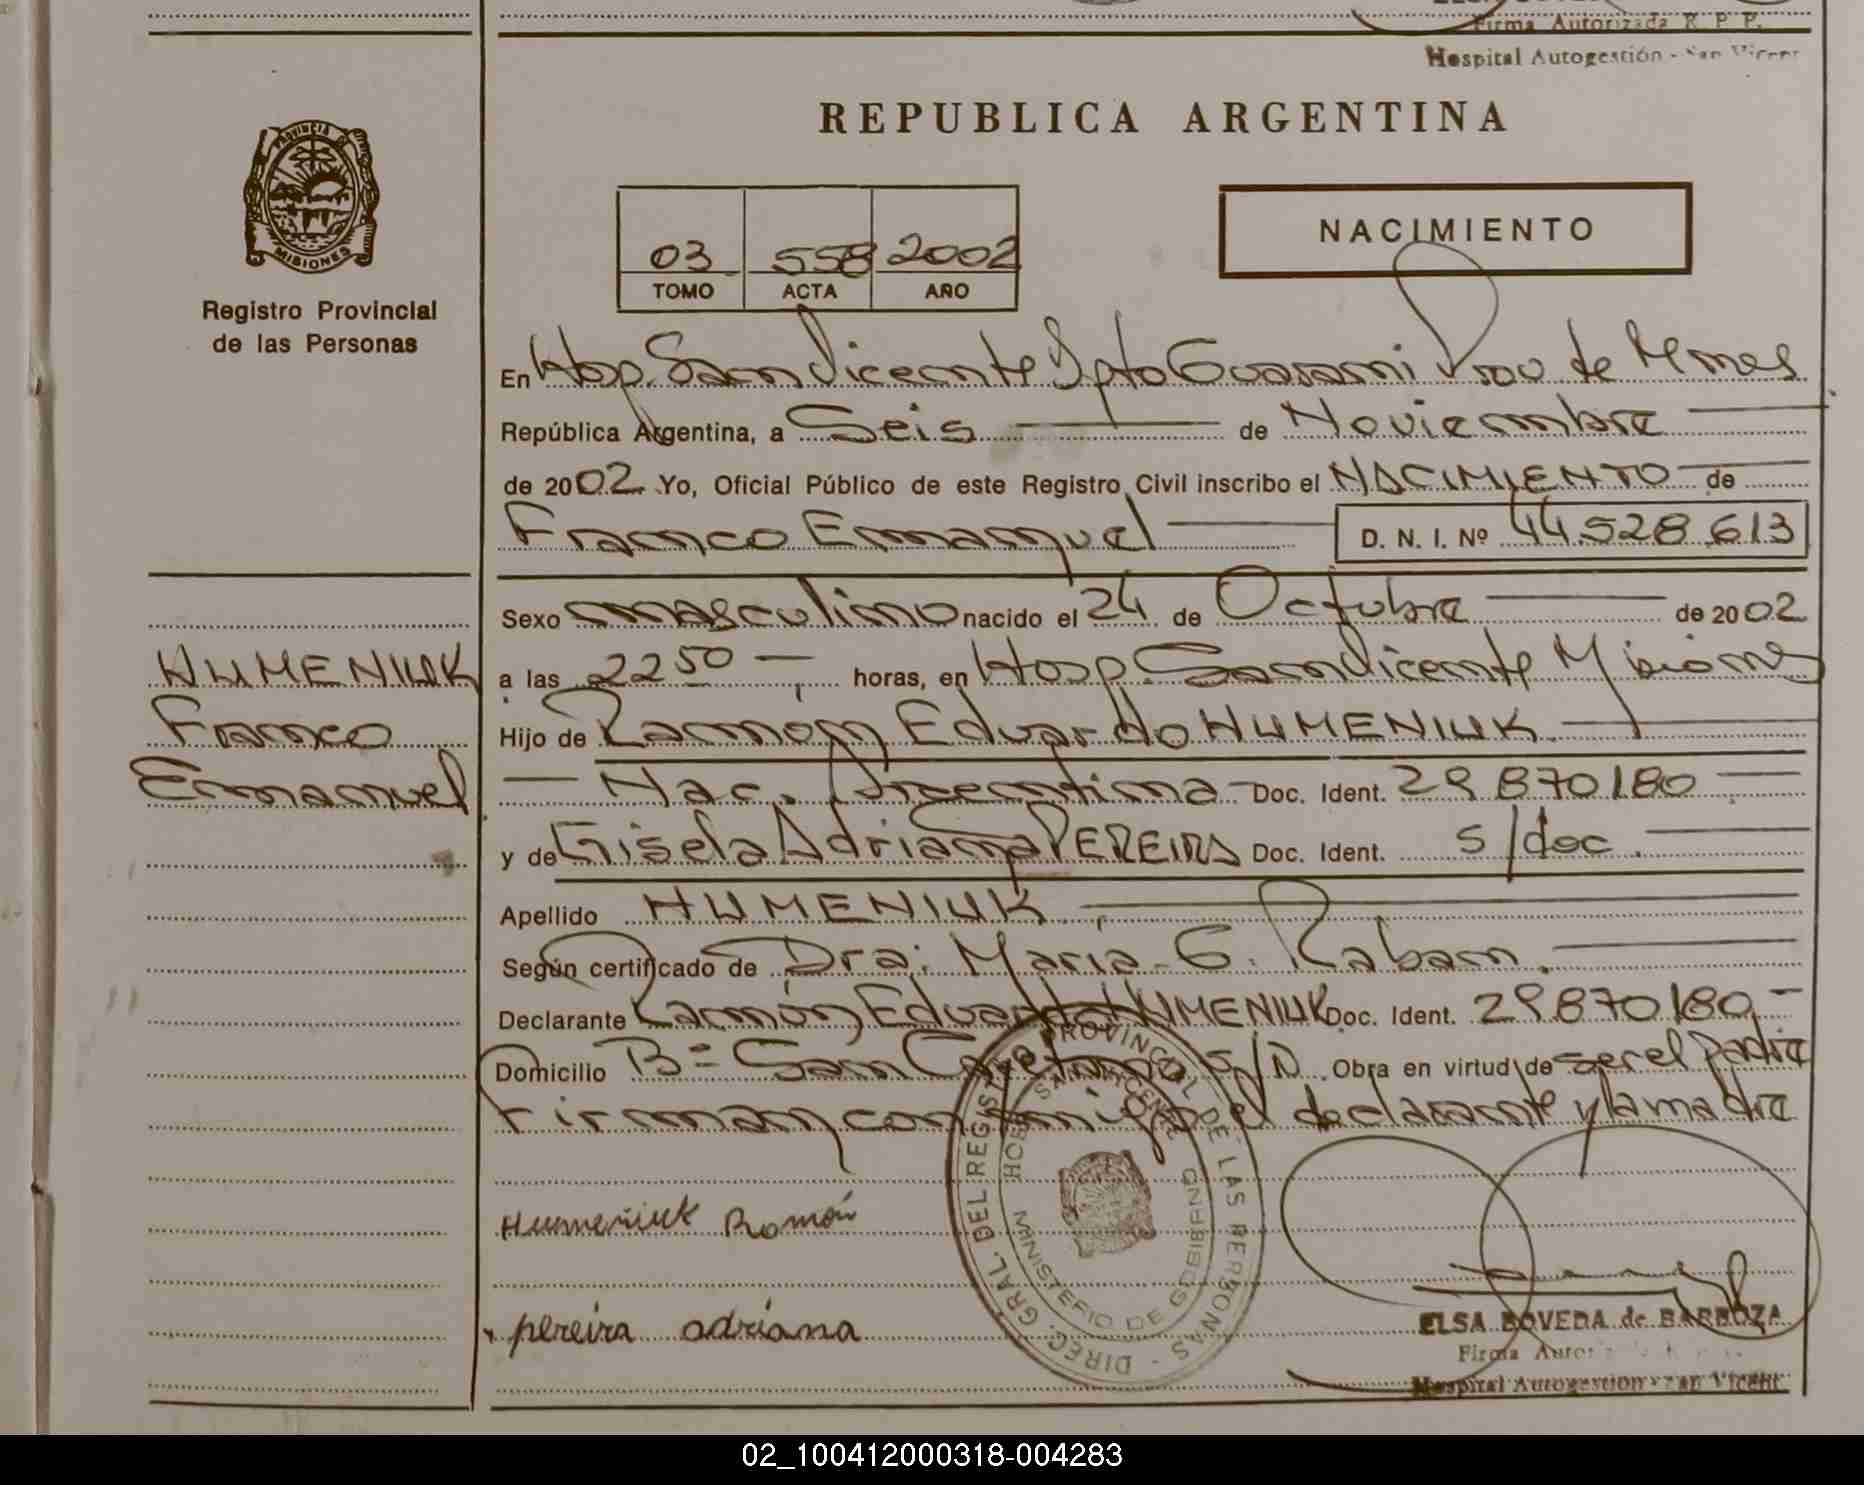 Firma Autorizada R. P. P.
Hospital Autogestión - San Vicent
PROVINCIA DE
MISIONES
Registro Provincial
de las Personas
REPUBLICA ARGENTINA
03 558 2002
TOMO ACTA AÑO
NACIMIENTO
En Hosp. San Vicente Dpto Guarani Prov de Mnes
República Argentina, a Seis de Noviembre
de 2002 Yo, Oficial Público de este Registro Civil inscribo el NACIMIENTO de
Franco Emmanuel D. N. I. Nº 44.528.613
Sexo masculino nacido el 24 de Octubre de 2002
a las 22 50 horas, en Hosp. San Vicente Misiones
Hijo de Ramón Eduardo HUMENIUK
Nac. Argentina Doc. Ident. 29 870180
y de Gisela Adriana PEREIRA Doc. Ident. s/doc.
Apellido HUMENIUK
Según certificado de Dra: María G. Raban.
Declarante Ramón Eduardo HUMENIUK Doc. Ident. 29.870180
Domicilio Bº San Cayetano S/N Obra en virtud de ser el Padre
Firman conmigo el declarante y la madre
HUMENIUK
Franco
Emmanuel
Humeniuk Ramón
pereira adriana
DIREC. GRAL. DEL REGISTRO PROVINCIAL DE LAS PERSONAS
MINISTERIO DE GOBIERNO
ELSA BOVEDA de BARBOZA
Firma Autor
Hospital Autogestión - San Vicent
02_100412000318-004283